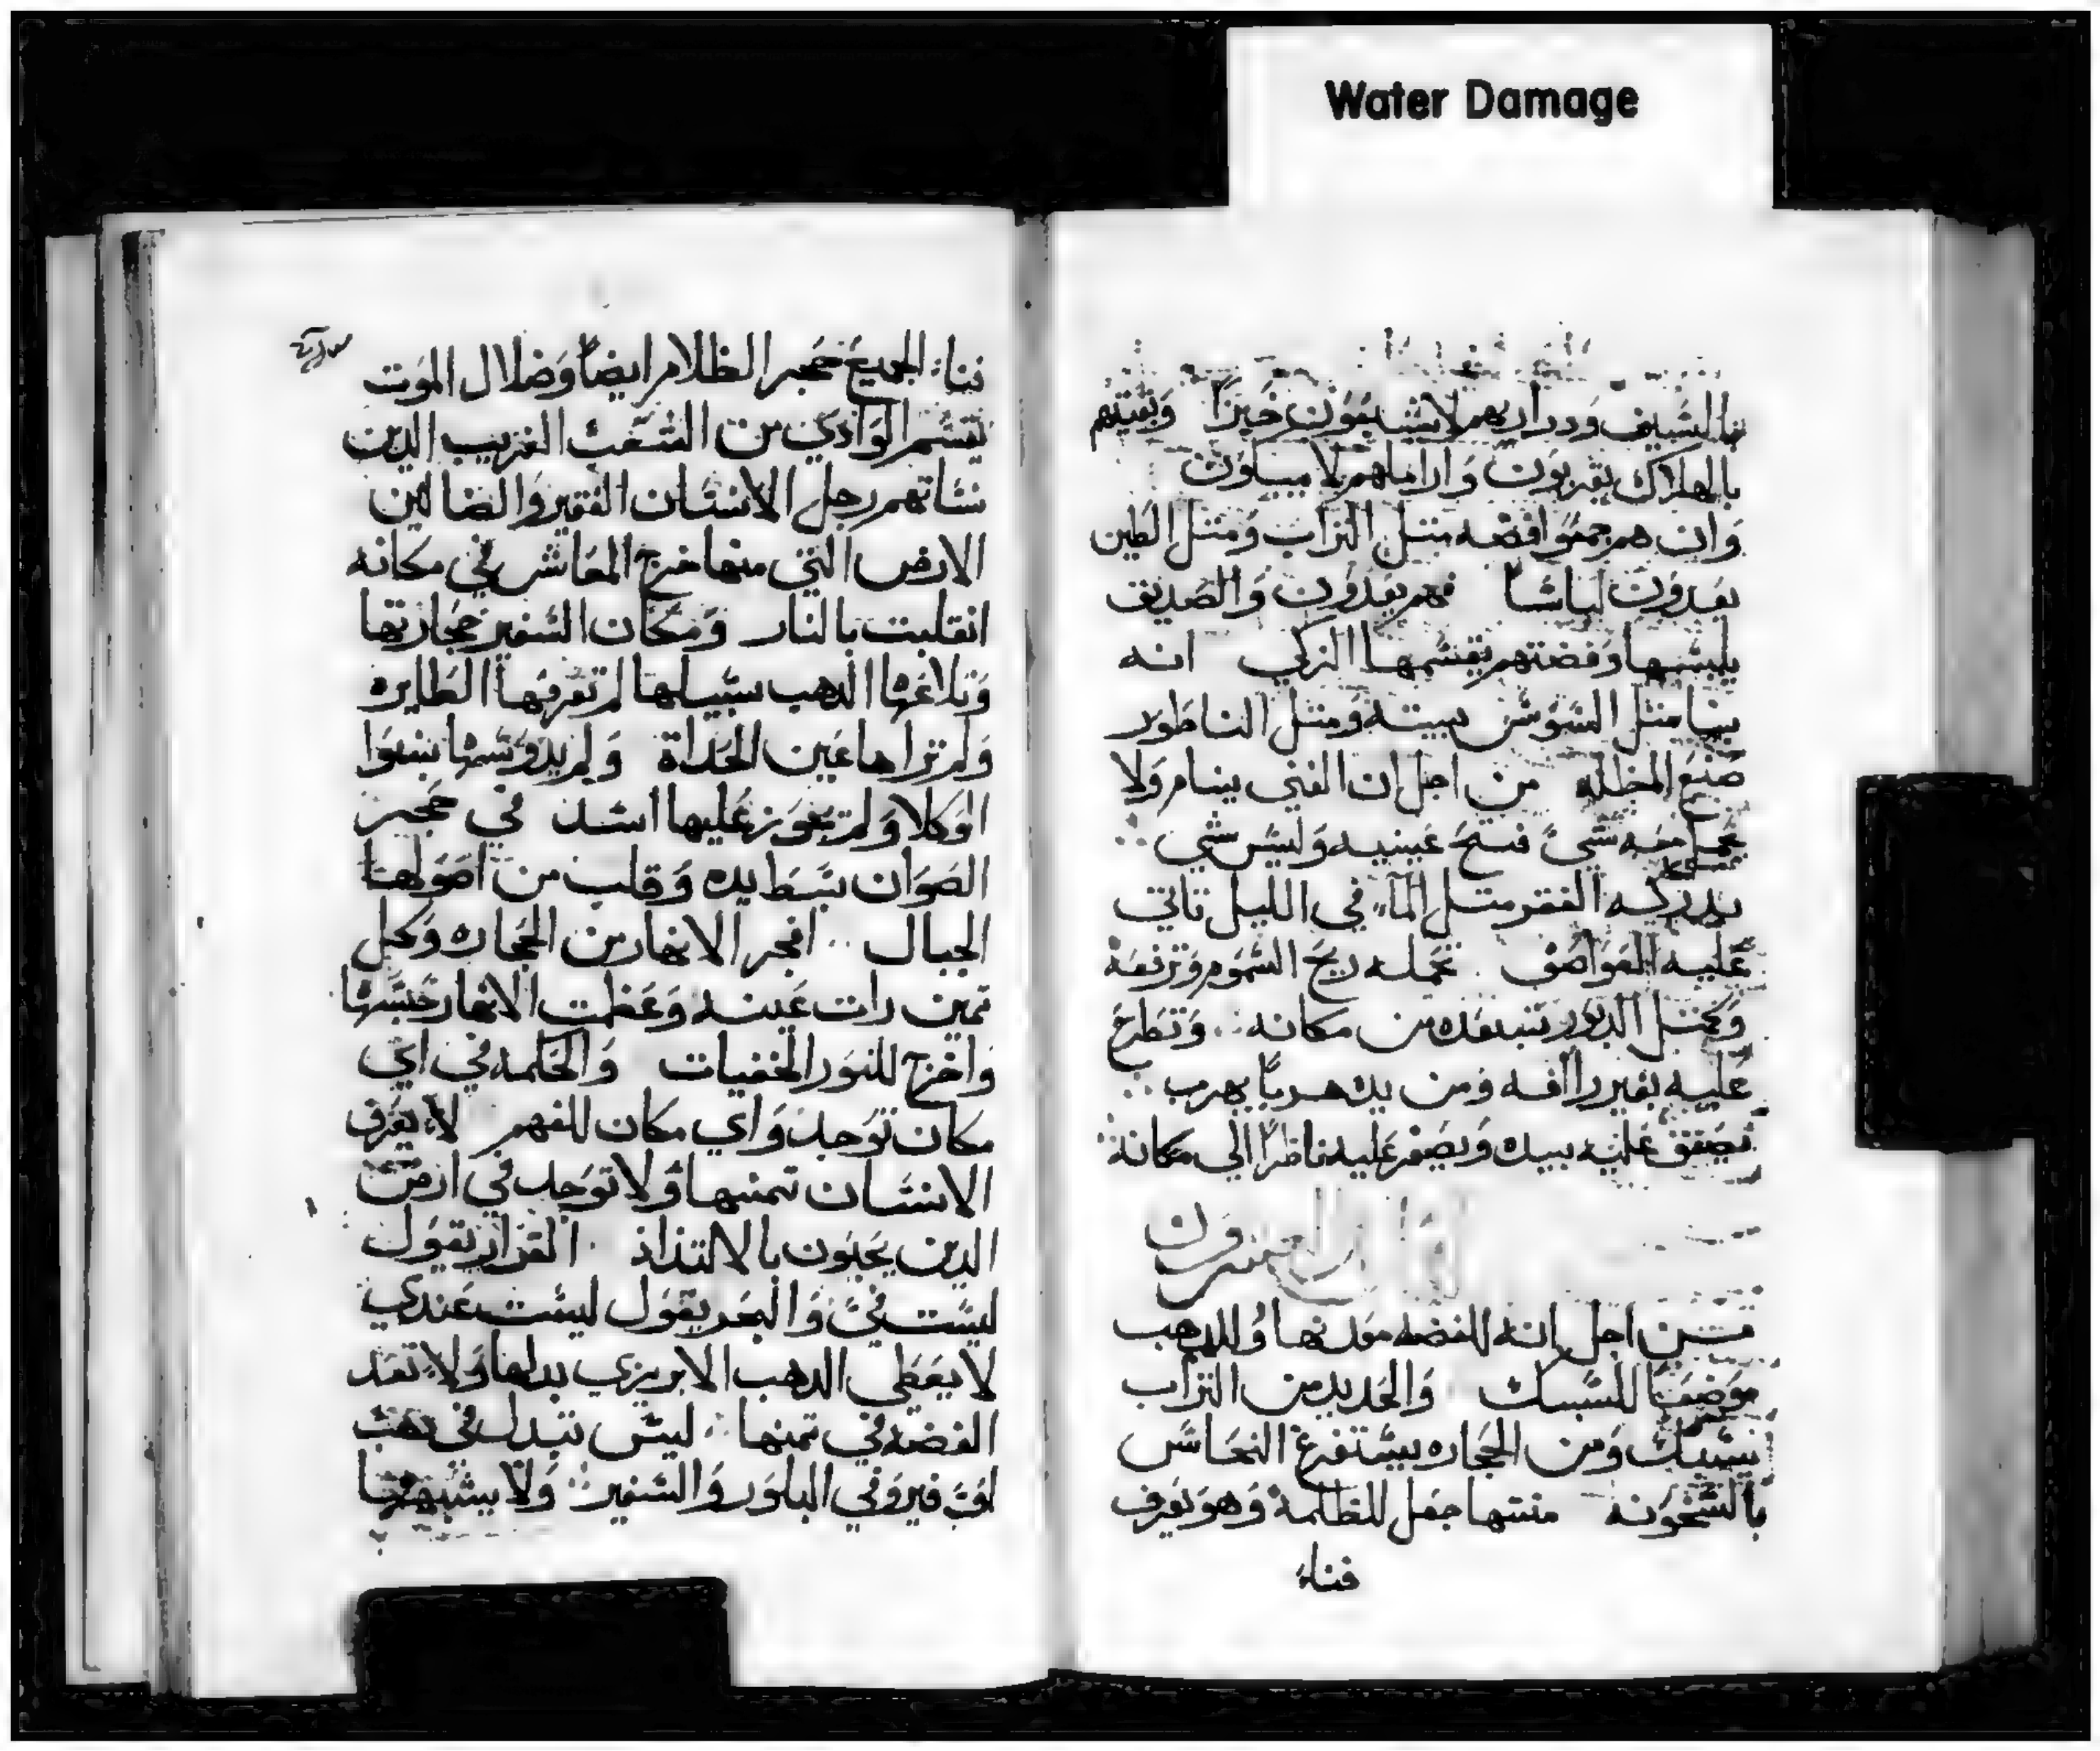 Water Damage
بالسيف ودراريهم لا يشبعون خبزاً وبقيتهم
بالهلاك يقربون واراملهم لا يبكون
وان هم جمعوا فضه مثل التراب ومثل الطين
يعدون لباساً فهم يعدون والصديق
يلبسها وفضتهم يقسمها الزكي انه
بنا مثل السوس بيته ومثل الناطور
صنع المظله من اجل ان الغني ينام ولا
شيئ فتح عينيه وليس شي
يدركه الفقر مثل الماء في الليل تاتي
عليه العواصف تحمله ريح السموم وترفعه
مكانه وتطرح
عليه بغير رافه ومن يده هرباً يهرب
يصفق عليه بيده ويصفر عليه ناظراً الي مكانه
والعشرون
من اجل انه للفضه معدنها وللدهب
موضعاً للسبك والحديد من التراب
يسبك ومن الحجاره يستفرغ النحاس
بالسخونه منتها جعل للظلمة وهو يعرف
فناء
فناء الجميع حجر الظلام ايضاً وضلال الموت
تقسم الوادي من الشعب الغريب الدين
نساتهم رجل الانسان الفقير والضالين
الارض التي منها خرج المعاش في مكانه
انقلبت بالنار ومكان السفير حجارتها
الدهب سبيلها لم تعرفها الطايره
ولم تراها عين الحداة ولم يدوسها بنوا
الوكلا ولم تجوز عليها اسد في حجر
الصوان بسط يده وقلب من اصولها
الجبال افجر الانهار من الحجاره وكل
تمين رات عينه وعظمت الانهار حبسها
واخرج للنور الخفيات والحكمه في اي
مكان توجد واي مكان للفهم لا يعرف
الانسان تمنها ولا توجد في ارض
الدين يحيون بالالتذاذ القرار يقول
ليست في والبحر يقول ليست عندي
لا يعطي الدهب الابريزي بدلها ولا تعد
الفضه في تمنها ليس تبدل في دهب
اوفير وفي البلور والسفير ولا يشبهها